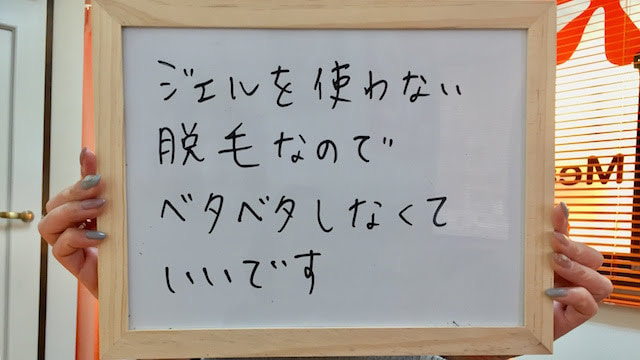 ジェルを使わない
脱毛なので
ベタベタしなくて
いいです